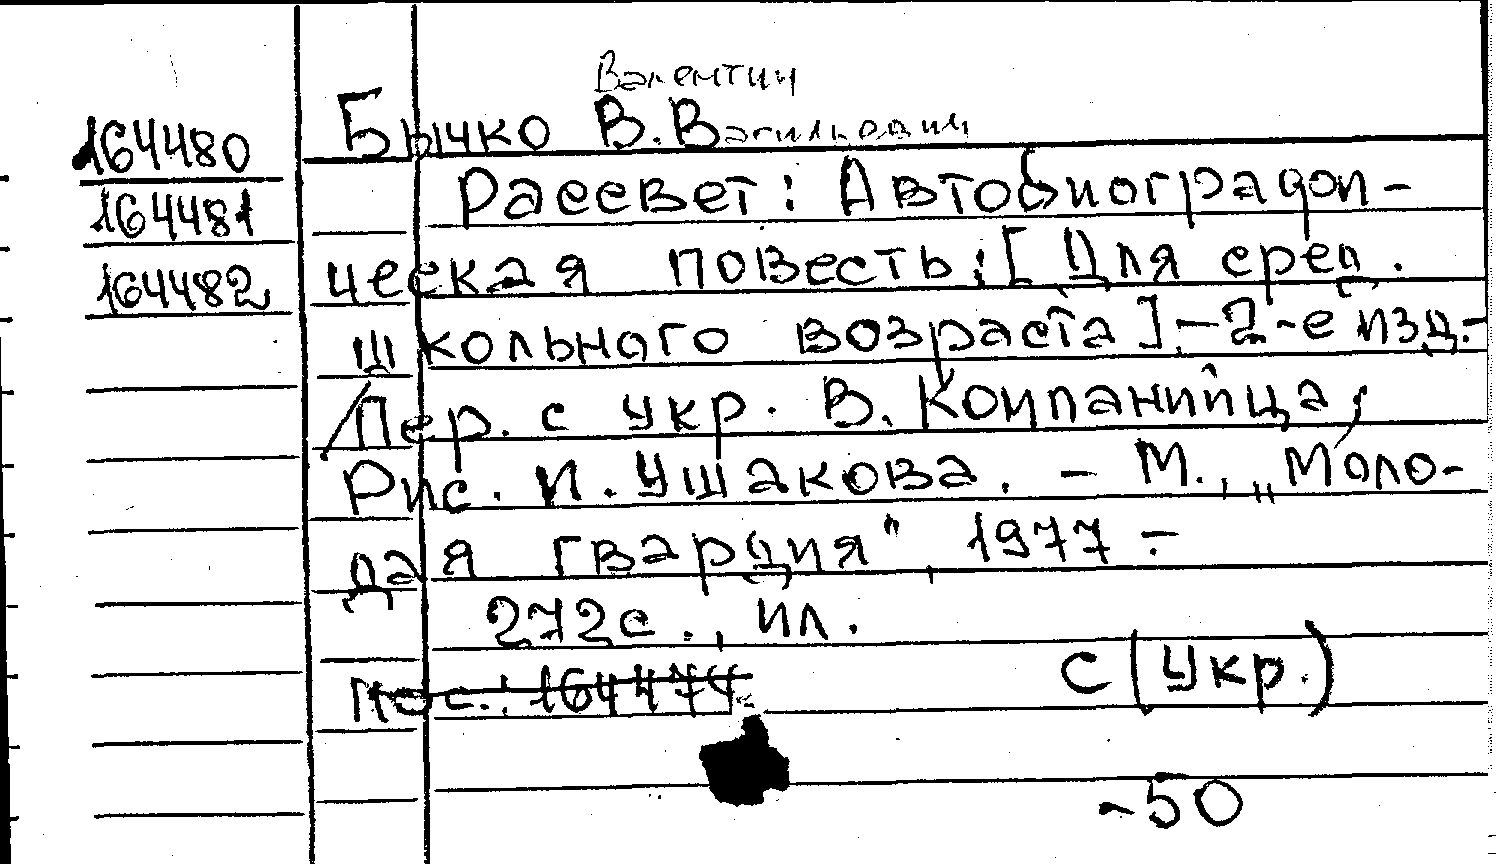 Валентин
164480 Бычко В. Васильевич
164481 Рассвет: Автобиографи-
164482 ческая повесть: [Для сред.
школьного возраста].-2-е изд.-
/Пер. с укр. В. Компанийца;
Рис. И. Ушакова. - М., „Моло-
дая гвардия", 1977.-
272с., ил.
С (Укр.)
-50